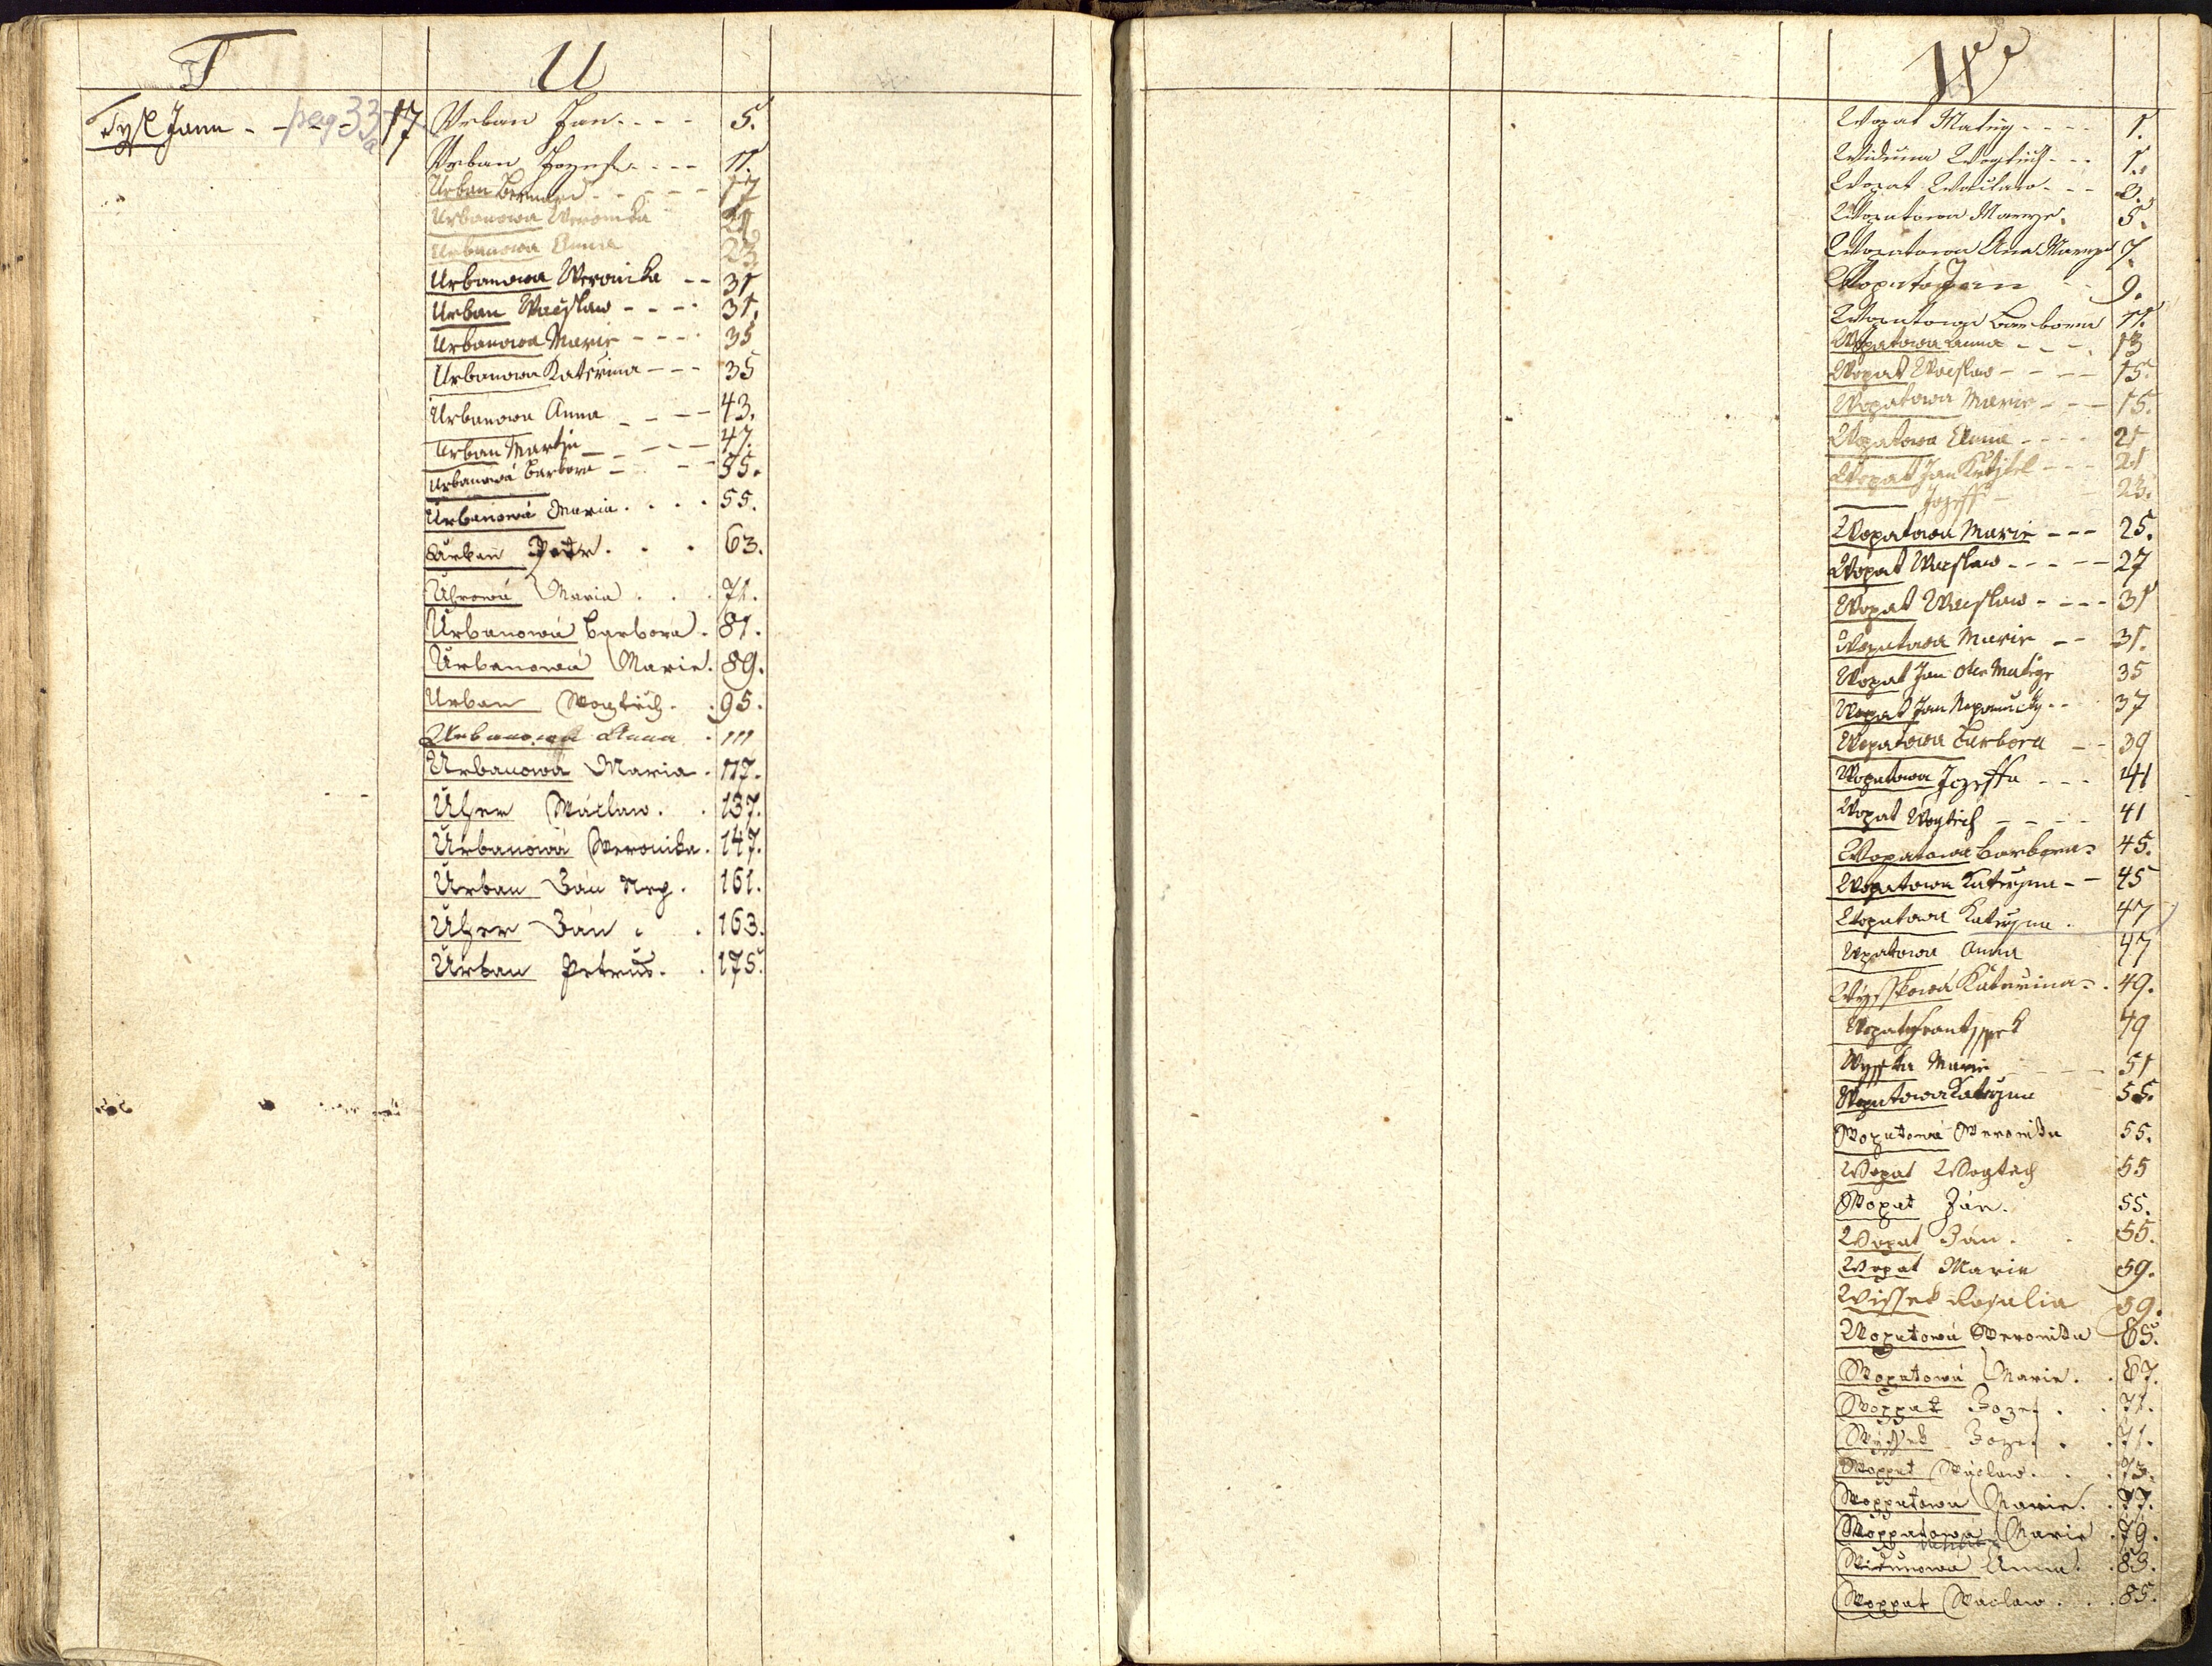 T
Tysl Jann - - pag 33 a 17
U
Urban Jan - - - - 5.
Urban Jozef - - - - 11.
Urban Bernard - - - - 17
Urbanowa Weronika 21
Urbanowa Anna 23
Urbanowa Weronika - - 31
Urban Waczlaw - - - - 31.
Urbanowa Marie - - - - 35
Urbanowa Katerina - - - 35
Urbanowa Anna - - - - 43.
Urban Martin - - - - 47.
Urbanowá Barbora - - - 55.
Urbanowá Maria . . . . 55.
Urban Petr . . . 63.
Uhrowá Maria . . . 71.
Urbanowá Barbora . 81.
Urbanowá Marie . 89.
Urban Wogtěch . . 95.
Urbanowa Anna . 111
Urbanowá Maria . 117.
Uher Wáclaw . . 137.
Urbanowá Weronika . 147.
Urban Ján Nep. . 161.
Uher Ján . . 163.
Urban Petrus . . 175.
W
Wopat Matěg - - - - 1.
Widuna Wogtěch - - - 1.
Wopat Wáclaw - - - 3.
Wopatowa Marye. 5.
Wopatowa Ana Marya 7.
Wopat Jann - - 9.
Wopatowa Barbora 11.
Wopatowa Anna - - - 13
Wopat Waczlaw - - - - 15.
Wopatowa Marie - - - 15.
Wopatowa Anna - - - - 21
Wopat Jan Křtitel - - - 21
—— Jozeff - - 23.
Wopatowa Marie - - - 25.
Wopat Waczlaw - - - - - 27
Wopat Waczlaw - - - - 31
Wopatowa Marie - - 31.
Wopat Jan otec Matěge 35
Wopat Jan Nepomucky - - 37
Wopatowa Barbora - - 39
Wopatowa Jozeffa - - - 41
Wopat Wogtěch - - - - 41
Wopatowá Barbora - 45.
Wopatowa Kateryna - - 45
Wopatowa Kateryna . 47
Wopatowa Anna 47
Wysskowá Katerina - . 49.
Wopat Frantyssek 49
Wysska Marie - - - - 51
Wopatowa Kateryna 55.
Wopatowá Weronika 55.
Wopat Wogtěch 55
Wopat Ján. 55.
Wopat Ján . . 55.
Wopat Marie 59.
Wissek Rosalia 59.
Wopatowá Weronika 65.
Wopatowá Marie . . 67.
Woppat Jozef . . 71.
Wyssek Jozef . . 71.
Woppat Wáclaw . . . 73.
Woppatowá Marie . . 77.
Woppatowá Marie . 79.
Widunowá Anna . . 83.
Woppat Wáclaw . . . 85.